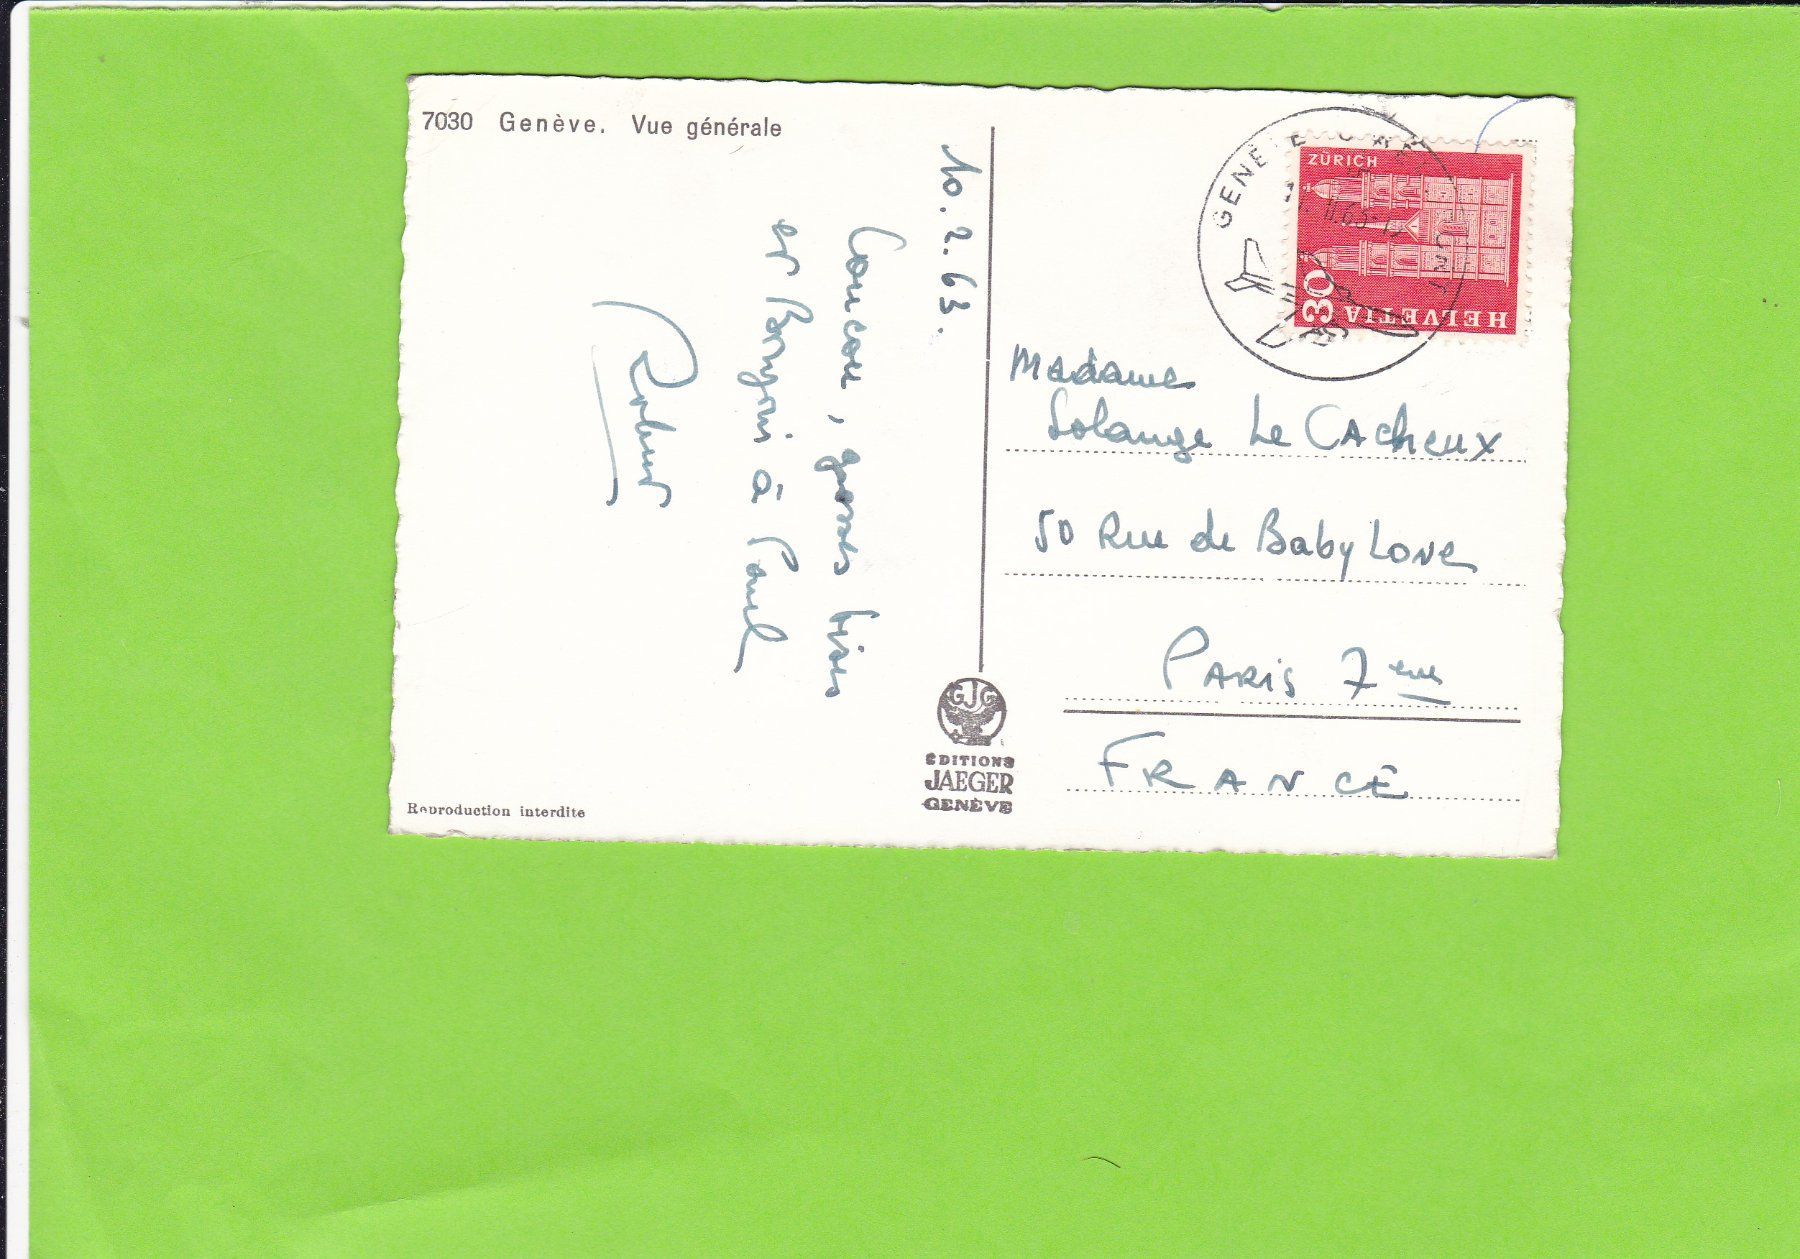 7030 Genève. Vue générale
10.2.63.
Coucou, grosses bises
et Bonjour à Paul
Robert
Madame
Solange Le Cacheux
50 Rue de Babylone
PARIS 7eme
FRANCE
ZÜRICH
30
HELVETIA
GENÈVE
GJG
ÉDITIONS
JAEGER
GENÈVE
Reproduction interdite